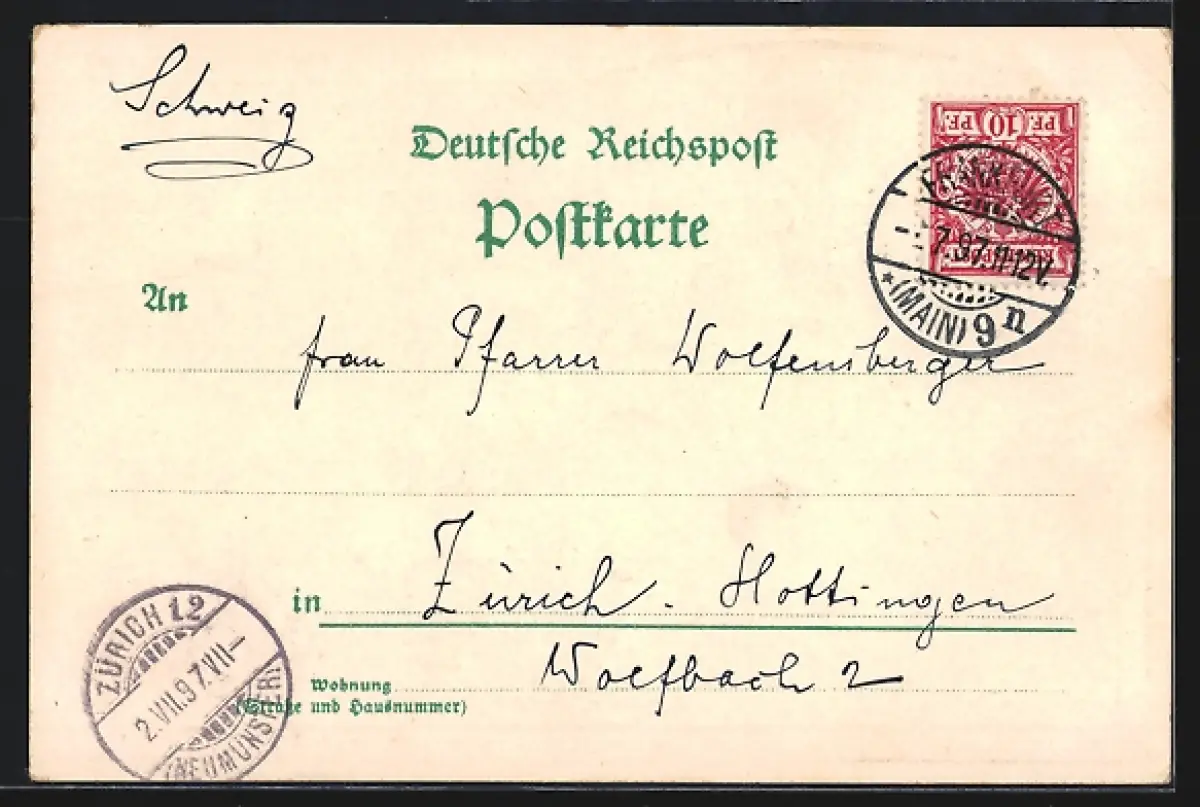 Schweiz
Deutsche Reichspost
Postkarte
PF. 10 PF.
REICHSPOST
FRANKFURT
7.97.11-12V.
* (MAIN) 9 n
An
Frau Pfarrer Wolfensberger
in Zürich. Hottingen
Wolfbach 2
Wohnung
(Straße und Hausnummer)
ZÜRICH 12
2.VII.97.VII-
(NEUMÜNSTER)